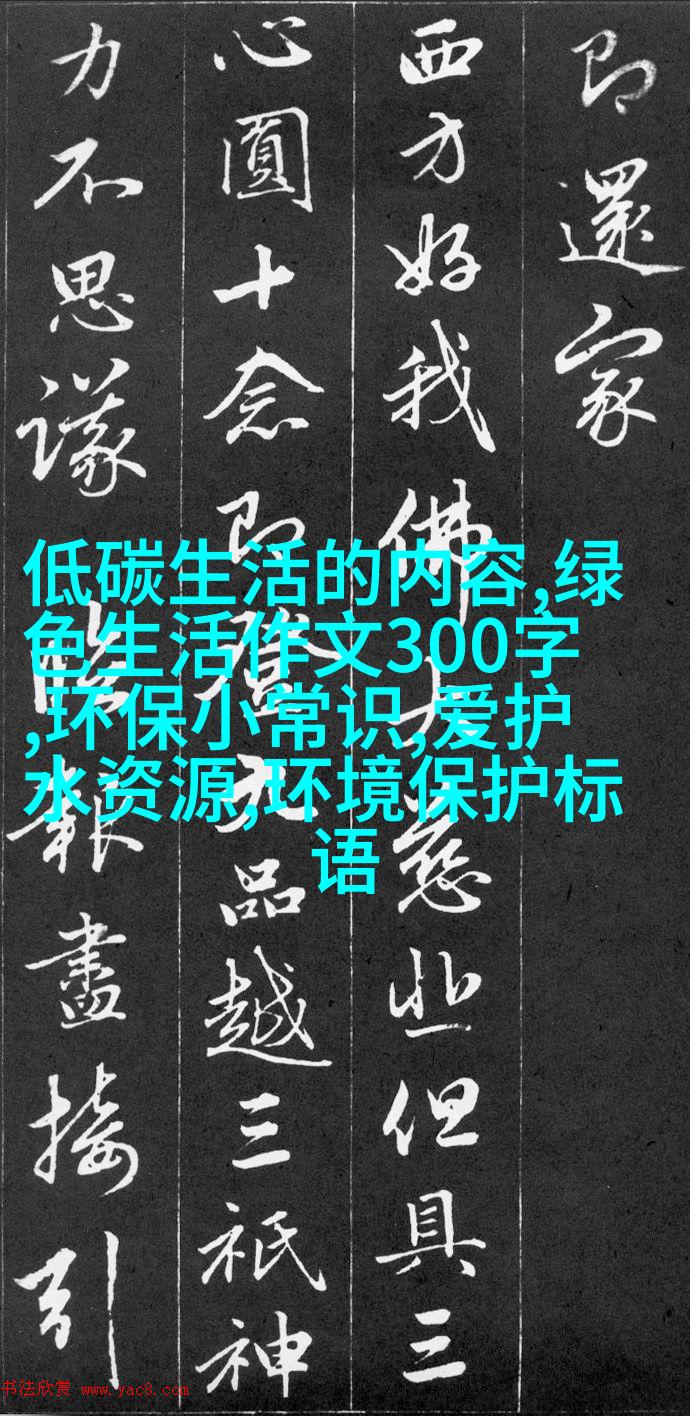 即還家
西方好我佛大慈悲但具三
心圓十念即證九品越三祇神
力不思議臨報盡接引
低碳生活的内容,绿
色生活作文300字
,环保小常识,爱护
水资源,环境保护标
语
书法欣赏 www.yac8.com